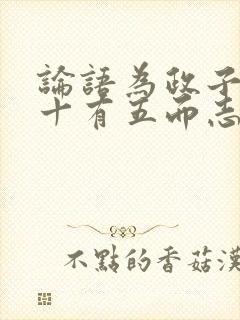 論語為政子
十有五而志
不點的香菇漢